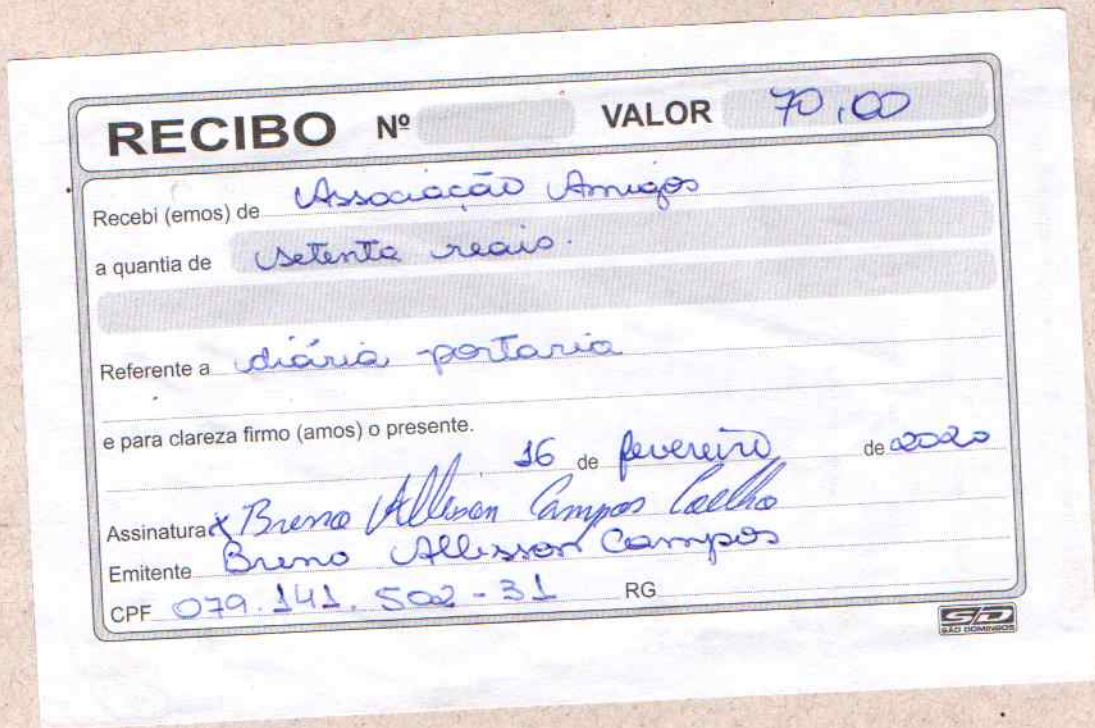 RECIBO Nº VALOR 70,00
Recebi (emos) de Associação Amigos
a quantia de setenta reais.
Referente a diária portaria
e para clareza firmo (amos) o presente.
16 de fevereiro de 2020
Assinatura x Breno Allisson Campos Coelho
Emitente Breno Allisson Campos
CPF 079.141.502-31 RG
SD
SÃO DOMINGOS